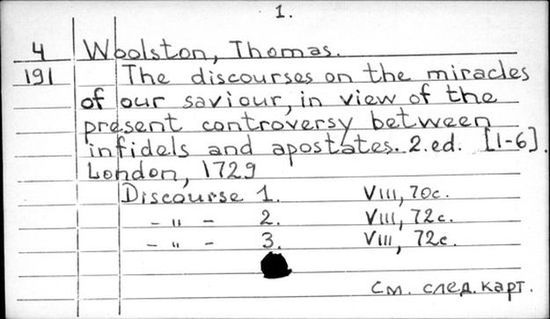 1.
4 Woolston, Thomas.
191 The discourses on the miracles
of our saviour, in view of the
present controversy between
infidels and apostates. 2.ed. [1-6].
London, 1729
Discourse 1. VIII, 70c.
- " - 2. VIII, 72c.
- " - 3. VIII, 72c.
См. след. карт.